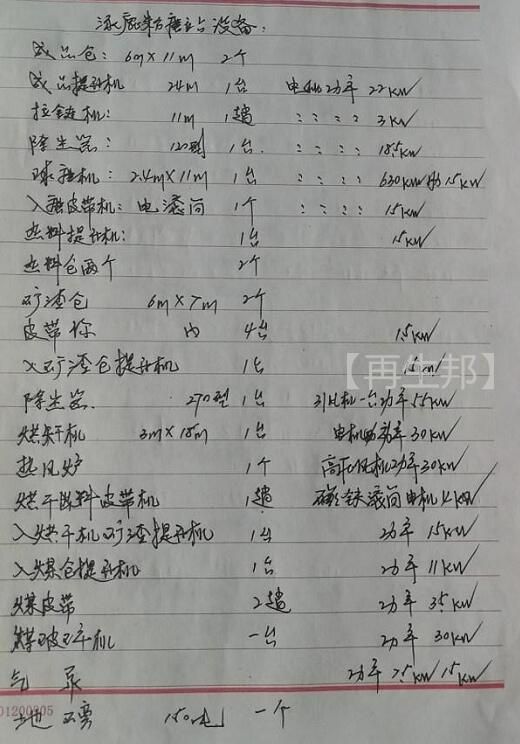 设备:
成品仓: 6m×11m 2个
成品提升机 24m 1台 电机功率 22kw
拉链机: 11m 1趟 : : : : 3kw
除尘器: 120型 1台. : : : : 18.5kw
球磨机: 2.4m×11m 1台 : : : : 630kw 15kw
入磨皮带机: 电滚筒 1个 : : : : 1.5kw
提升机: 1台 15kw
仓两个 2个
矿渣仓 6m×7m 2个
皮带称 4台 1.5kw
入矿渣仓提升机 1台 15kw
【再生邦】
除尘器. 270型 1台 引风机一台功率55kw
烘干机 3m×18m 1台 电机功率30kw
热风炉 1个 高压风机功率30kw
烘干上料皮带机 1趟 磁铁滚筒电机4kw
入烘干机矿渣提升机 1台 功率 15kw
入煤仓提升机 1台 功率 11kw
煤皮带 2趟 功率 35kw
煤破碎机 一台 功率 30kw
气泵 功率 7.5kw 15kw
01200805
地磅 150吨 一个